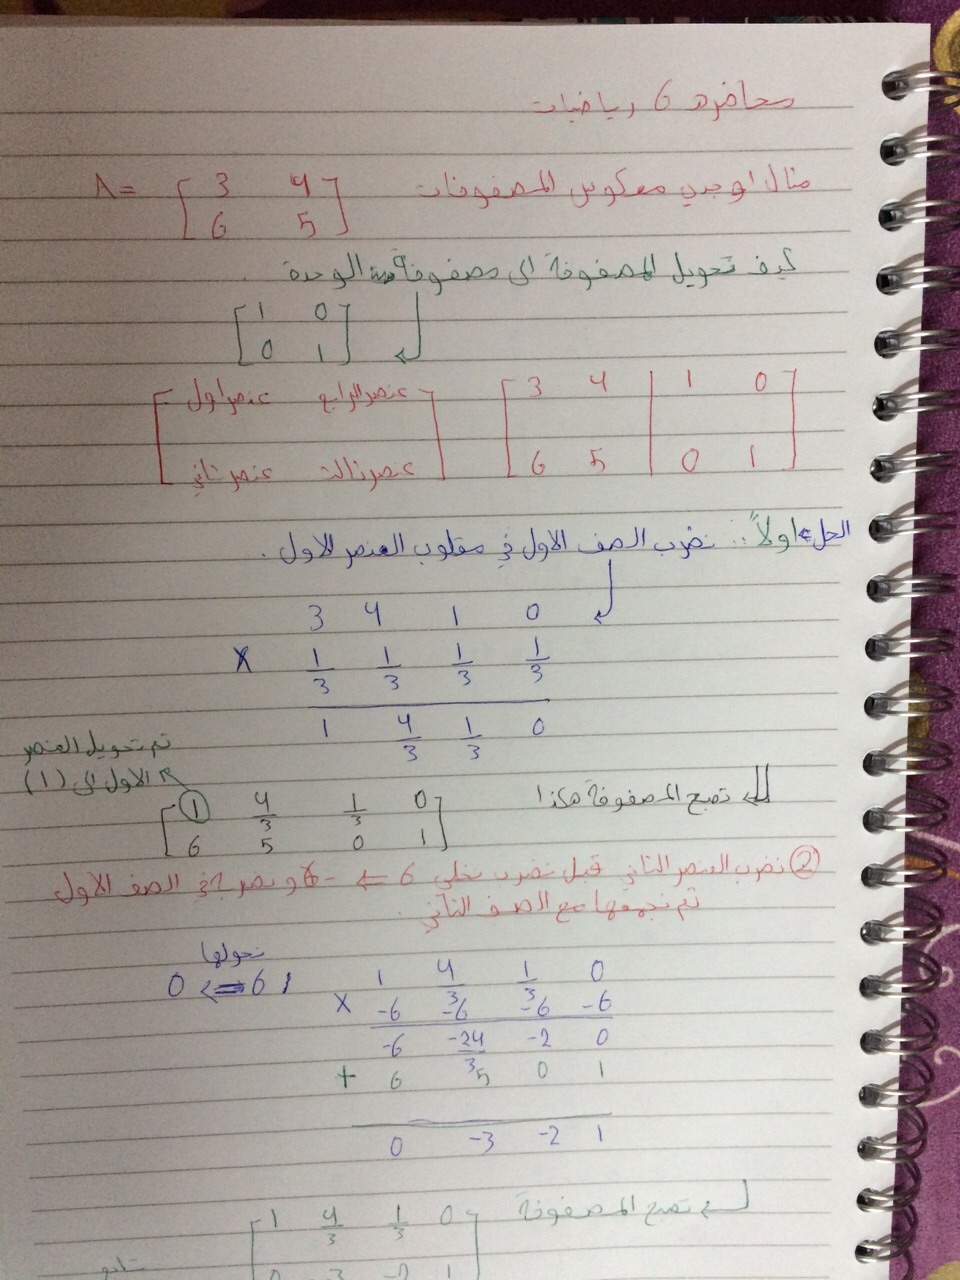 محاضره 6 رياضيات
مثال اوجدي معكوس المصفوفات A = [ 3 4
6 5 ]
كيف تحويل المصفوفة الى مصفوفة الوحدة .
[ 1 0
0 1 ]
[ عنصر اول عنصر الرابع ] [ 3 4 | 1 0 ]
[ عنصر ثاني عنصر ثالث ] [ 6 5 | 0 1 ]
الحل ⇐ اولاً :. نضرب الصف الاول في مقلوب العنصر الاول .
3 4 1 0
X 1/3 1/3 1/3 1/3
1 4/3 1/3 0
تم تحويل العنصر
الاول الى (1)
تصبح المصفوفة هكذا
[ 1 4/3 1/3 0
6 5 0 1 ]
② نضرب العنصر الثاني قبل نضرب نخلي 6 ⇐ -6 و نضربه في الصف الاول
ثم نجمعها مع الصف الثاني .
نحولها
6 ⇐ 0
1 4/3 1/3 0
X -6 -6 -6 -6
-6 -24/3 -2 0
+ 6 5 0 1
0 -3 -2 1
تصبح المصفوفة
[ 1 4/3 1/3 0
0 -3 -2 1 ]